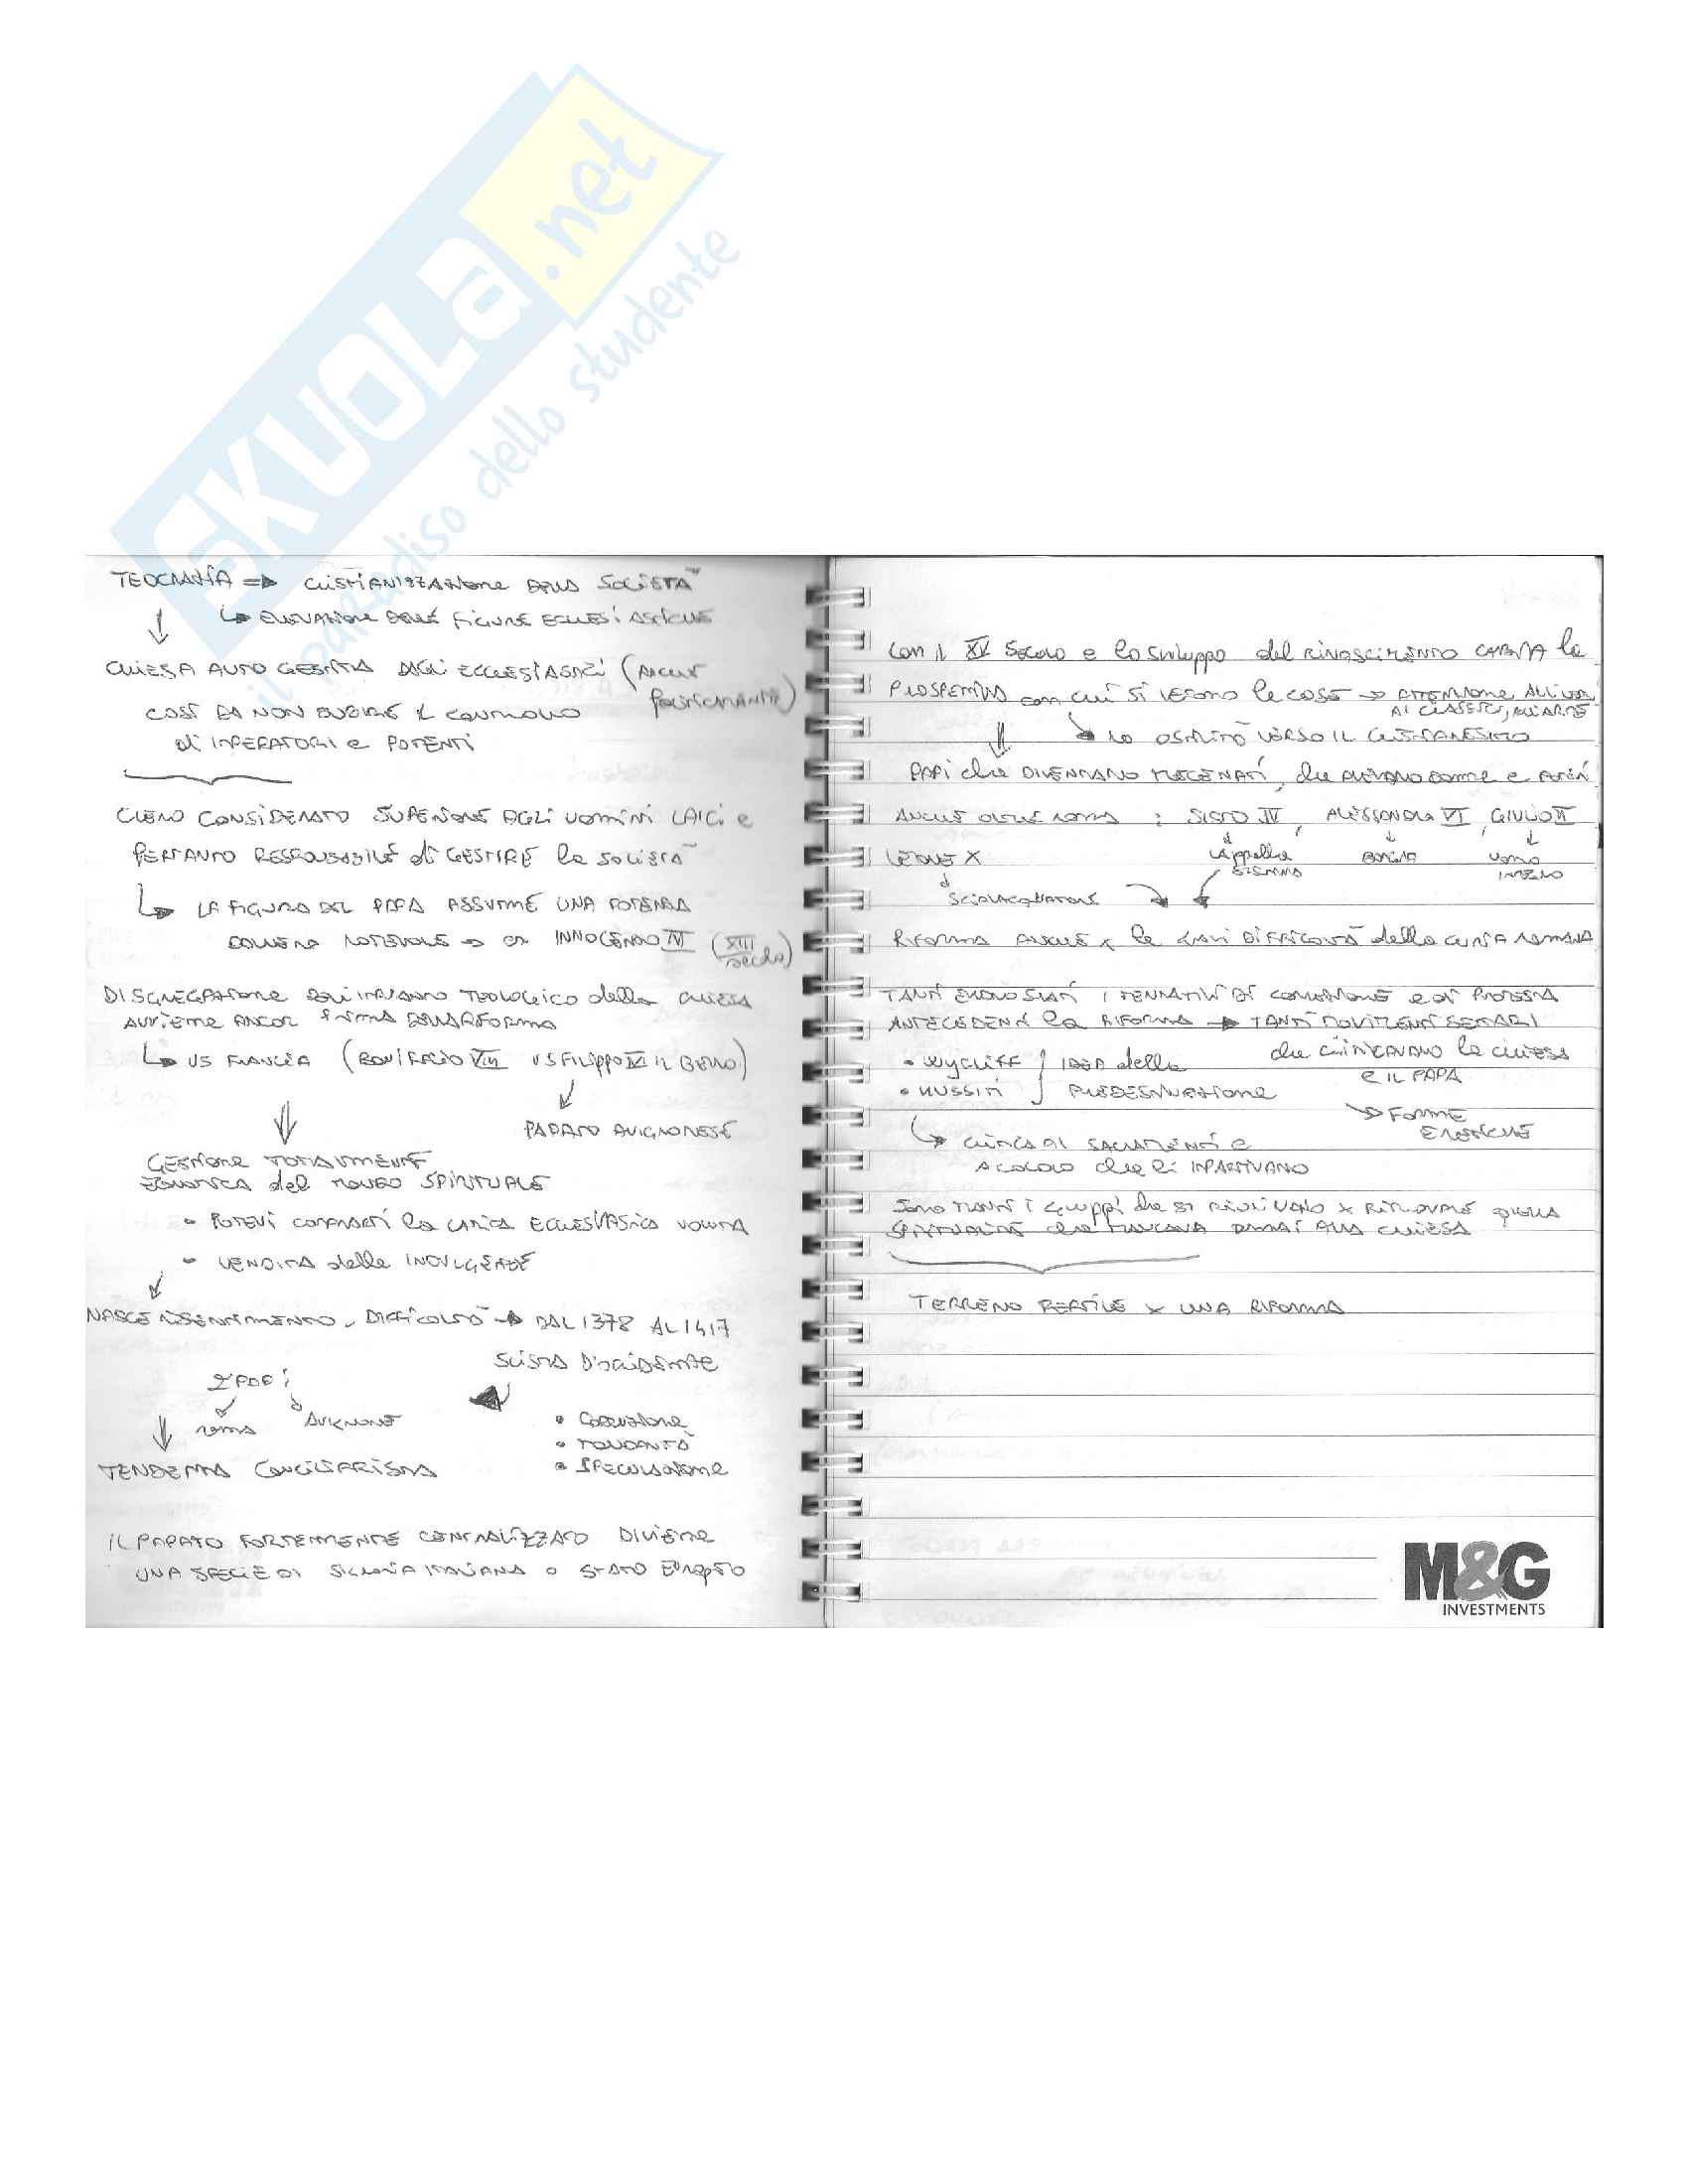 SKUOLa.net
il paradiso dello studente
TEOCRAZIA => CRISTIANIZZAZIONE DELLA SOCIETÀ
↳ ELEVAZIONE DELLE FIGURE ECCLESIASTICHE
CHIESA AUTO GESTITA DAGLI ECCLESIASTICI (ANCHE
POLITICAMENTE)
COSÌ DA NON SUBIRE IL CONTROLLO
di IMPERATORI e POTENTI
CLERO CONSIDERATO SUPERIORE AGLI UOMINI LAICI e
PERTANTO RESPONSABILE di GESTIRE la SOCIETÀ
↳ LA FIGURA DEL PAPA ASSUME UNA POTENZA
NOTEVOLE → INNOCENZO IV (XIII
secolo)
DISGREGAZIONE DELL'IMPIANTO TEOLOGICO della CHIESA
AVVIENE ANCOR PRIMA DELLA RIFORMA
↳ VS FRANCIA (BONIFACIO VIII VS FILIPPO IV IL BELLO)
PAPATO AVIGNONESE
GESTIONE TOTALMENTE
ECONOMICA del MONDO SPIRITUALE
• POTEVI COMPRARTI la CARICA ECCLESIASTICA VOLUTA
• VENDITA delle INDULGENZE
NASCE RISENTIMENTO, DIFFICOLTÀ → DAL 1378 AL 1417
SCISMA D'OCCIDENTE
2 PAPI
ROMA AVIGNONE
• CORRUZIONE
• MONDANITÀ
• SPECULAZIONE
TENDENZA CONCILIARISTA
IL PAPATO FORTEMENTE CENTRALIZZATO DIVIENE
UNA SPECIE DI SIGNORIA ITALIANA O STATO EUROPEO
Con il XV SECOLO e lo sviluppo del RINASCIMENTO CAMBIA la
PROSPETTIVA con cui SI VEDONO le COSE → ATTENZIONE ALL'UOMO
AI CLASSICI, ALL'ARTE
NO OSTILITÀ VERSO IL CRISTIANESIMO
PAPI che DIVENTANO MECENATI, che AVEVANO DONNE e FIGLI
ANCHE OLTRE ROMA : SISTO IV, ALESSANDRO VI, GIULIO II
LEONE X Cappella BORGIA UOMO
SISTINA
SCIALACQUATORE
RIFORMA ANCHE x le GRAVI DIFFICOLTÀ della CURIA ROMANA
TANTI ERANO STATI I TENTATIVI DI CORREZIONE e di PROTESTA
ANTECEDENTI la RIFORMA → TANTI MOVIMENTI SETTARI
che CRITICAVANO la CHIESA
E IL PAPA
• WYCLIFF } IDEA della
• HUSSITI } PREDESTINAZIONE
→ FORME
ERETICHE
↳ CRITICA AI SACRAMENTI e
A COLORO che li IMPARTIVANO
SONO TANTI i GRUPPI che SI RIUNIVANO x RITROVARE QUELLA
SPIRITUALITÀ che MANCAVA ORMAI ALLA CHIESA
TERRENO FERTILE x UNA RIFORMA
M&G
INVESTMENTS